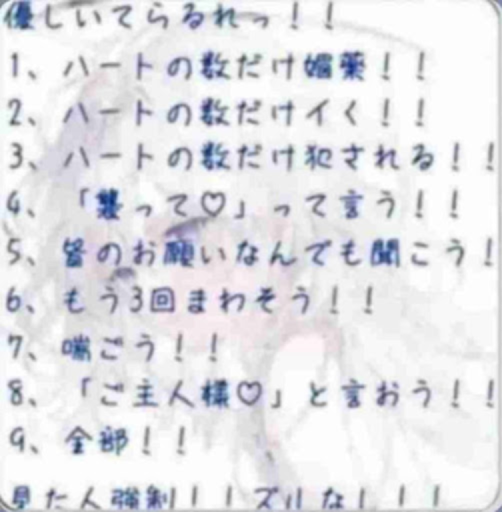 優しいてらるれっ！！
1、ハートの数だけ媚薬！！
2、ハートの数だけイく！！
3、ハートの数だけ犯される！！
4、「襲って♡」って言う！！
5、皆のお願いなんでも聞こう！
6、もう3回まわそう！！
7、喘ごう！！
8、「ご主人様♡」と言おう！！
9、全部！！
見た人強制！！ズルな！！！